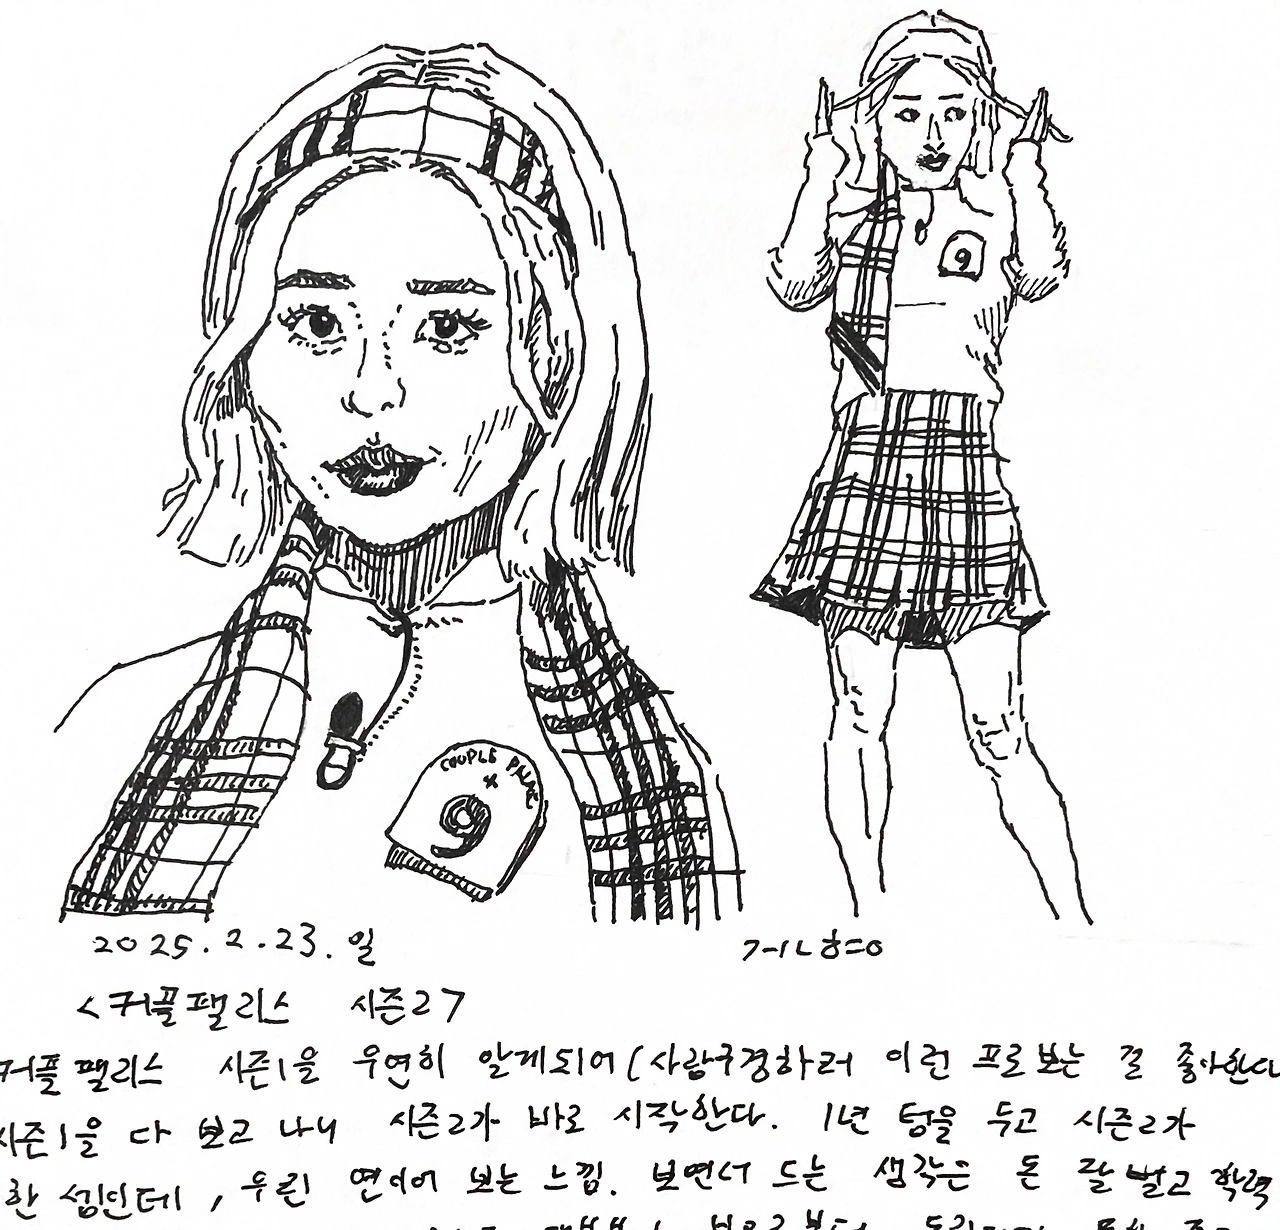 9
COUPLE PALACE
9
2025. 2. 23. 일
<커플팰리스 시즌2>
커플팰리스 시즌1을 우연히 알게되어(사람구경하러 이런 프로 보는 걸 좋아한다
시즌1을 다 보고 나니 시즌2가 바로 시작한다. 1년 텀을 두고 시즌2가
한 셈인데, 우린 연이어 보는 느낌. 보면서 드는 생각은 돈 잘 벌고 학력